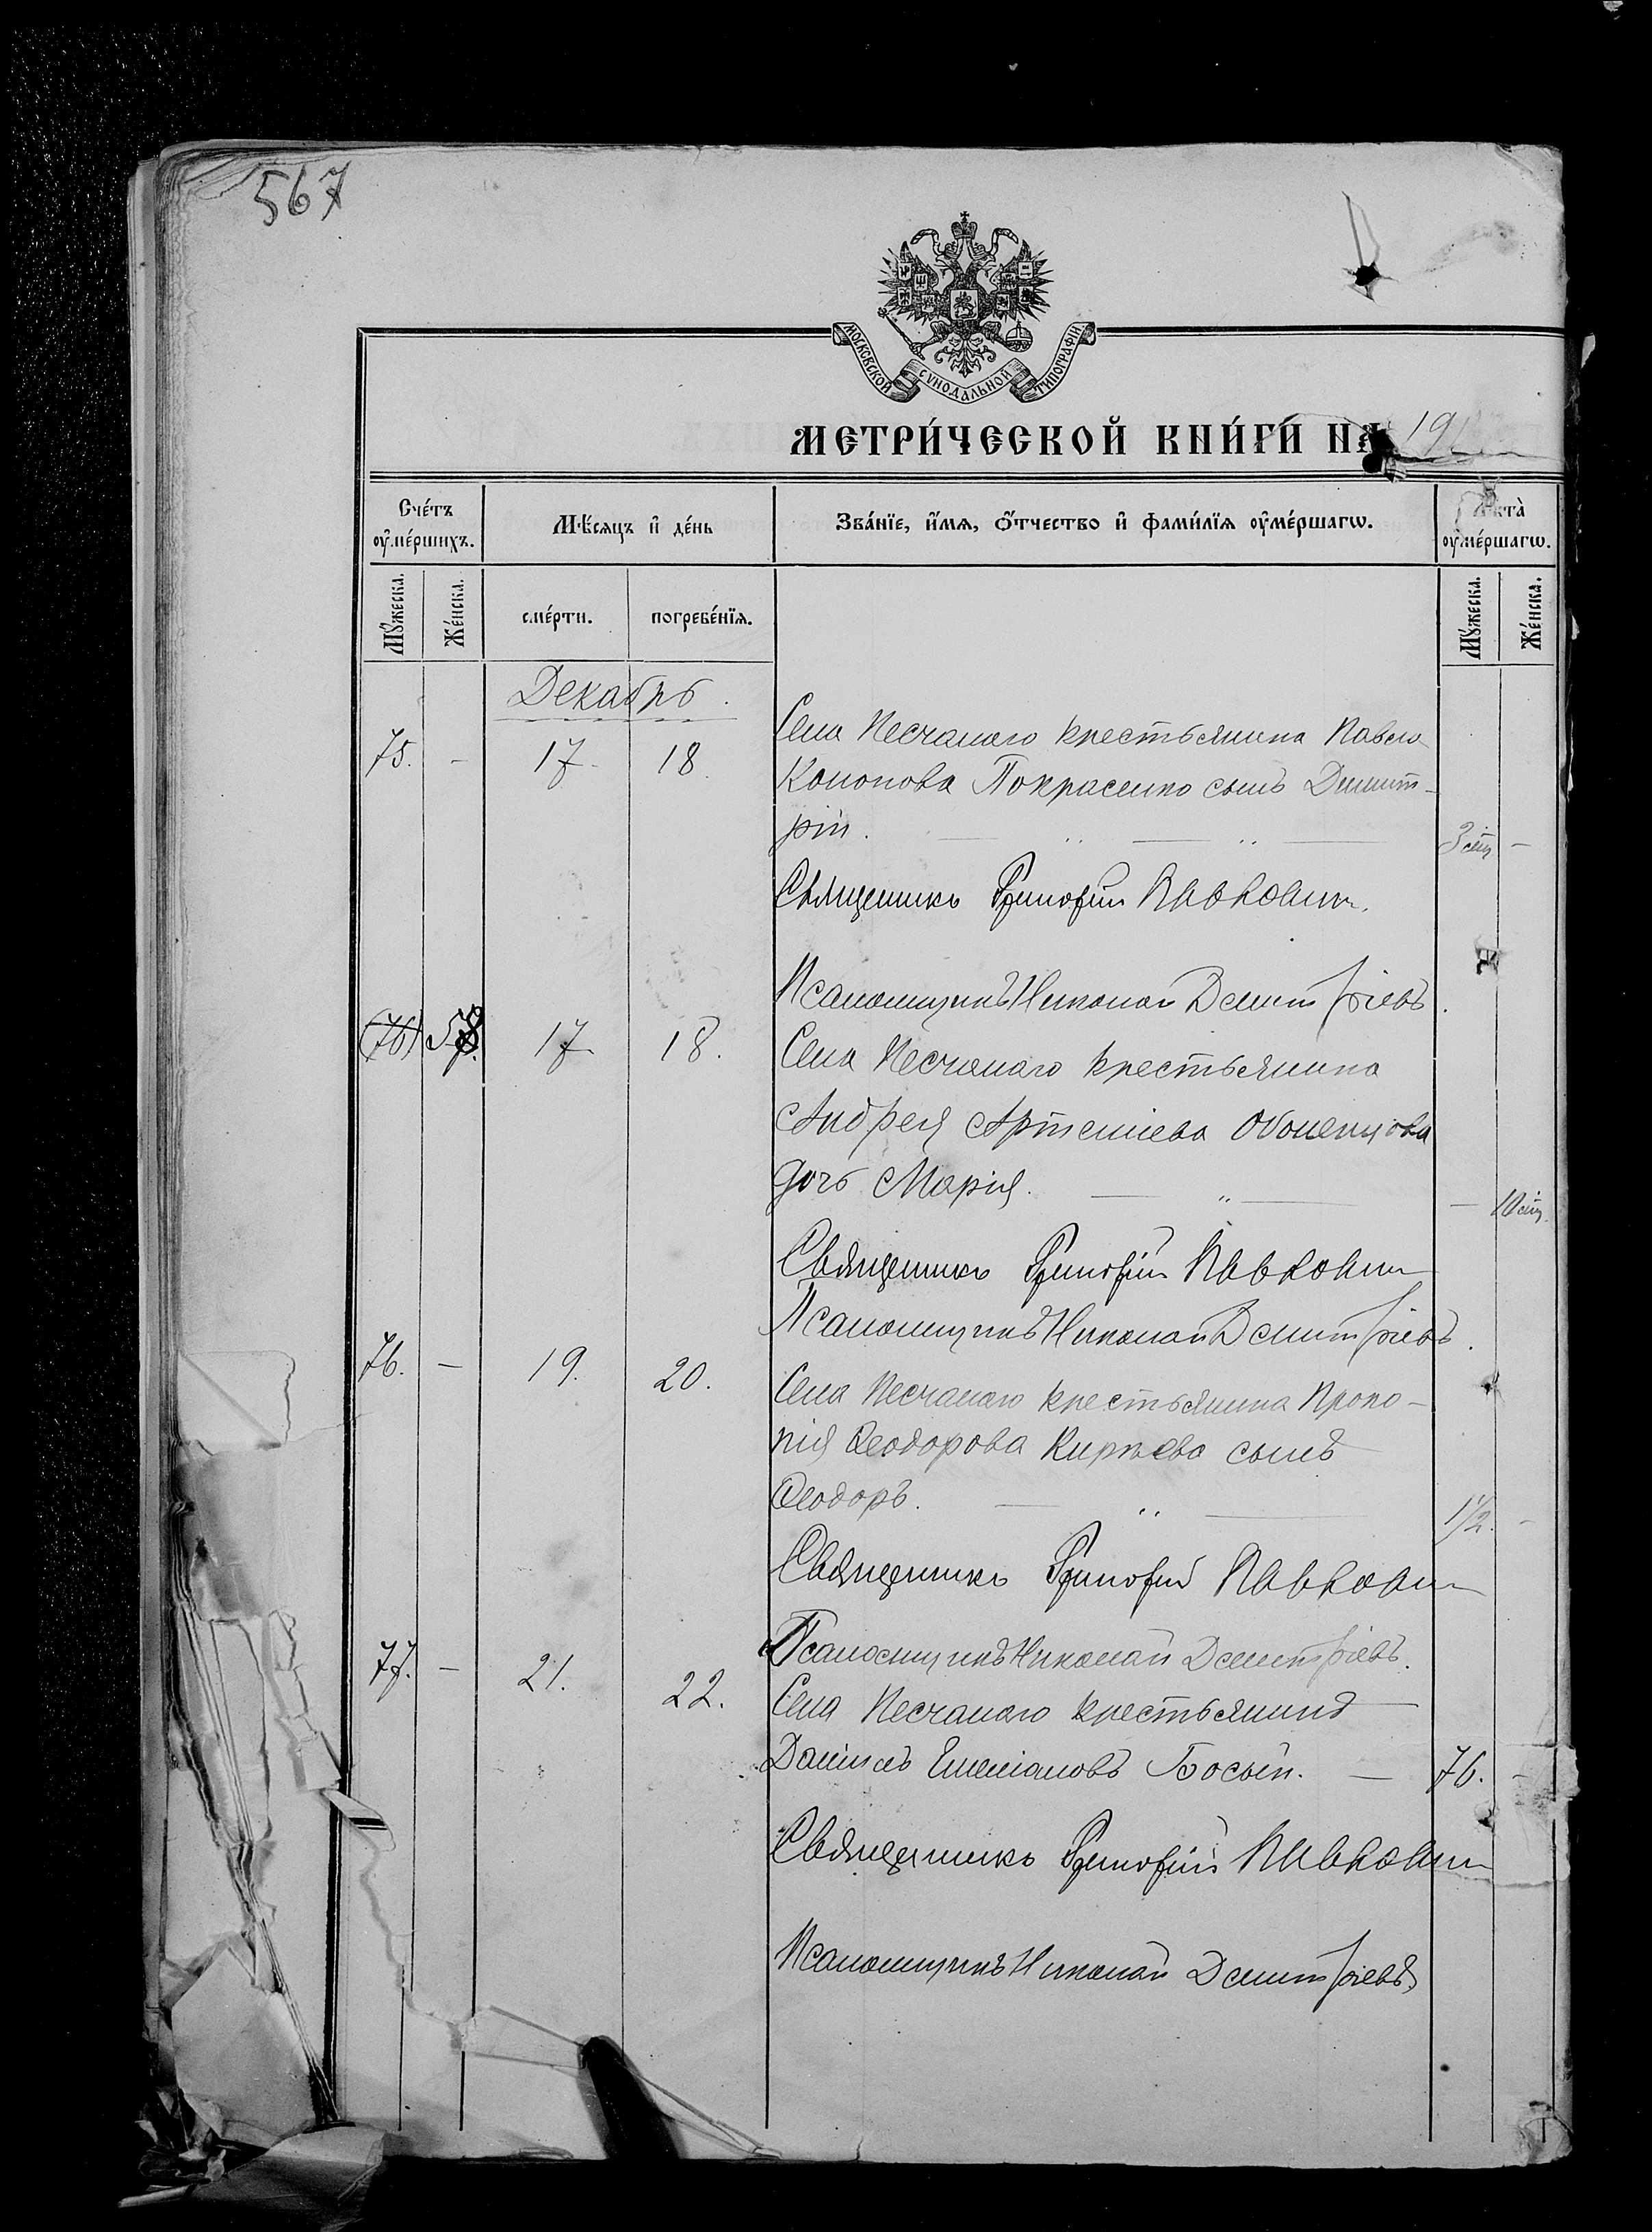 567
МОСКОВСКОЙ СѴНОДАЛЬНОЙ ТИПОГРАФІИ
МЕТРИ́ЧЕСКОЙ КНИ́ГИ НА 19
Сче́тъ ᲂу҆ме́ршихъ.
Мѣ́сяцъ и҆ де́нь
Зва́нїе, и҆́мѧ, ѻ҆́тчество и҆ фами́лїѧ ᲂу҆ме́ршагѡ.
Лѣта̀ ᲂу҆ме́ршагѡ.
Мꙋ́жеска.
Же́нска.
сме́рти.
погребе́нїѧ.
Мꙋ́жеска.
Же́нска.
Декабрь.
75. - 17 18. Села Песчанаго крестьянина Павла
Кононова Покрасенко сынъ Димит-
рій. 3 -
Священникъ Григорій Павкович
Псаломщикъ Николай Димитріевъ.
(76) 58. 17 18. Села Песчанаго крестьянина
Андрея Артеміева
дочь Марія. -
Священникъ Григорій Павкович
Псаломщикъ Николай Димитріевъ.
76. - 19. 20. Села Песчанаго крестьянина Проко-
пія Ѳеодорова Кирѣева сынъ
Ѳеодоръ. 1/2. -
Священникъ Григорій Павкович
Псаломщикъ Николай Димитріевъ.
77. - 21. 22. Села Песчанаго крестьянинъ
Даніилъ Емеліановъ Босый. 76. -
Священникъ Григорій Павкович
Псаломщикъ Николай Димитріевъ